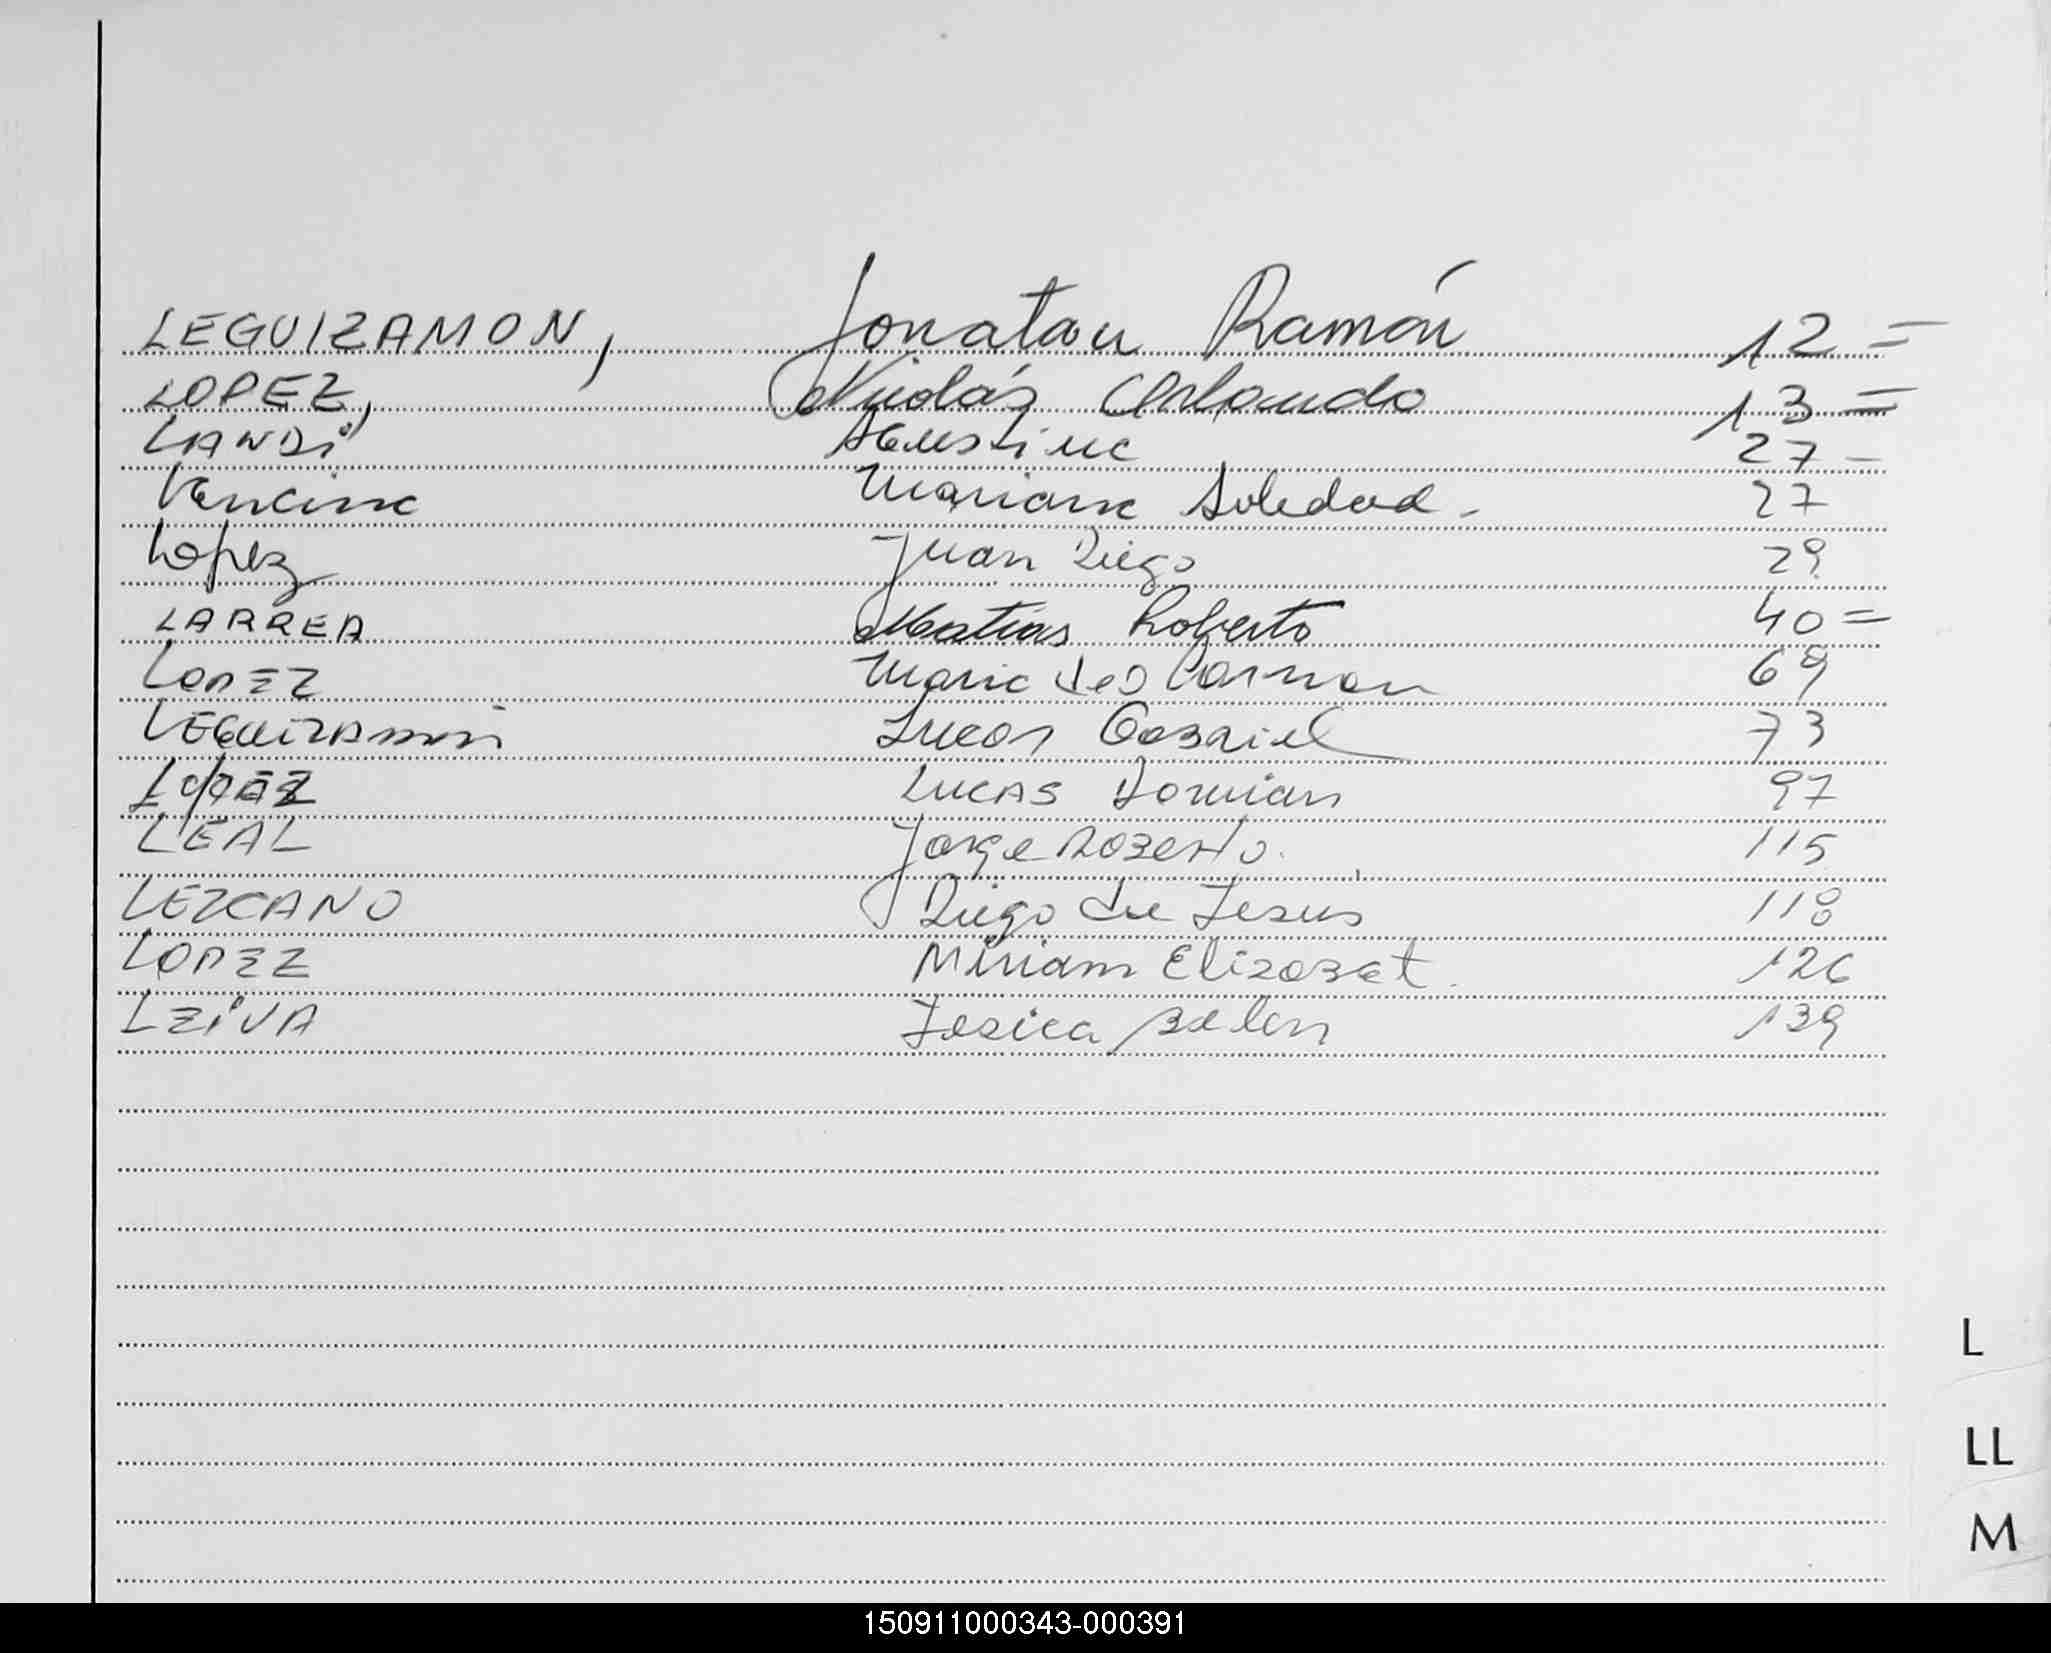 LEGUIZAMON, Jonatan Ramón 12 =
LOPEZ, Nicolás Orlando 13 =
LANDi Agustina 27 -
Mariana Soledad. 27
Lopez Juan Diego 29
LARREA Matias Roberto 40 =
LOPEZ Maria del Carmen 69
LEGUIZAMON Lucas Gabriel 73
LOPEZ LUCAS Damian 97
LEAL Jorge Roberto. 115
LEZCANO Diego de Jesús 118
LOPEZ Miriam Elizabet. 126
LEiVA Jesica Belen 139
L
LL
M
150911000343-000391